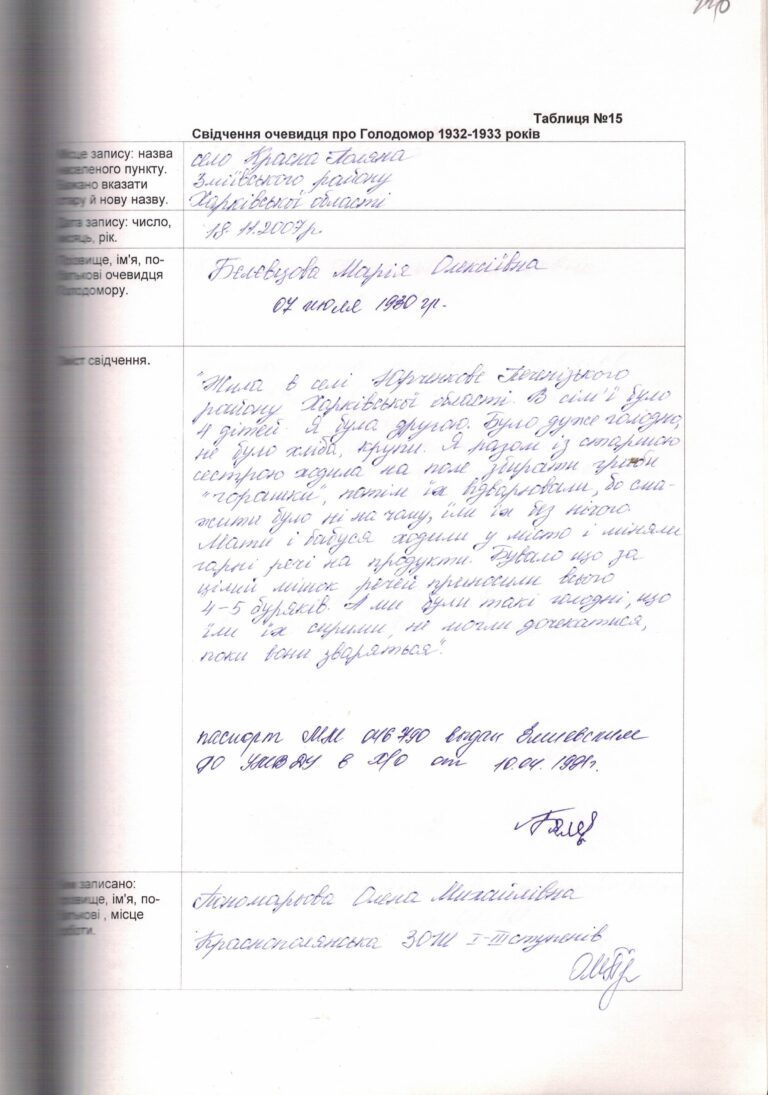 Таблиця №15
Свідчення очевидця про Голодомор 1932-1933 років
Місце запису: назва
населеного пункту.
Бажано вказати
стару й нову назву.
село Красна Поляна
Зміївського району
Харківської області
Дата запису: число,
місяць, рік.
18.11.2007р.
Прізвище, ім'я, по-
батькові очевидця
Голодомору.
Бєлєвцова Марія Олексіївна
07 июля 1930 гр.
Зміст свідчення.
"Жила в селі Юрченкове Печенізького
району Харківської області. В сім'ї було
4 дітей. Я була другою. Було дуже голодно,
не було хліба, крупи. Я разом із старшою
сестрою ходила на поле збирати гриби
"горашки", потім їх відварювали, бо сма-
жити було ні на чому, їли їх без нічого
Мати і бабуся ходили у місто і міняли
гарні речі на продукти. Бувало що за
цілий мішок речей приносили всього
4-5 буряків. А ми були такі голодні, що
їли їх сирими, не могли дочекатися,
поки вони зваряться".
паспорт ММ 046790 выдан Змиевским
РО УМВДУ в Х/о от 10.04.
Ким записано:
прізвище, ім'я, по-
батькові , місце
роботи.
Пономарьова Олена Михайлівна
Краснополянська ЗОШ I-III ступенів